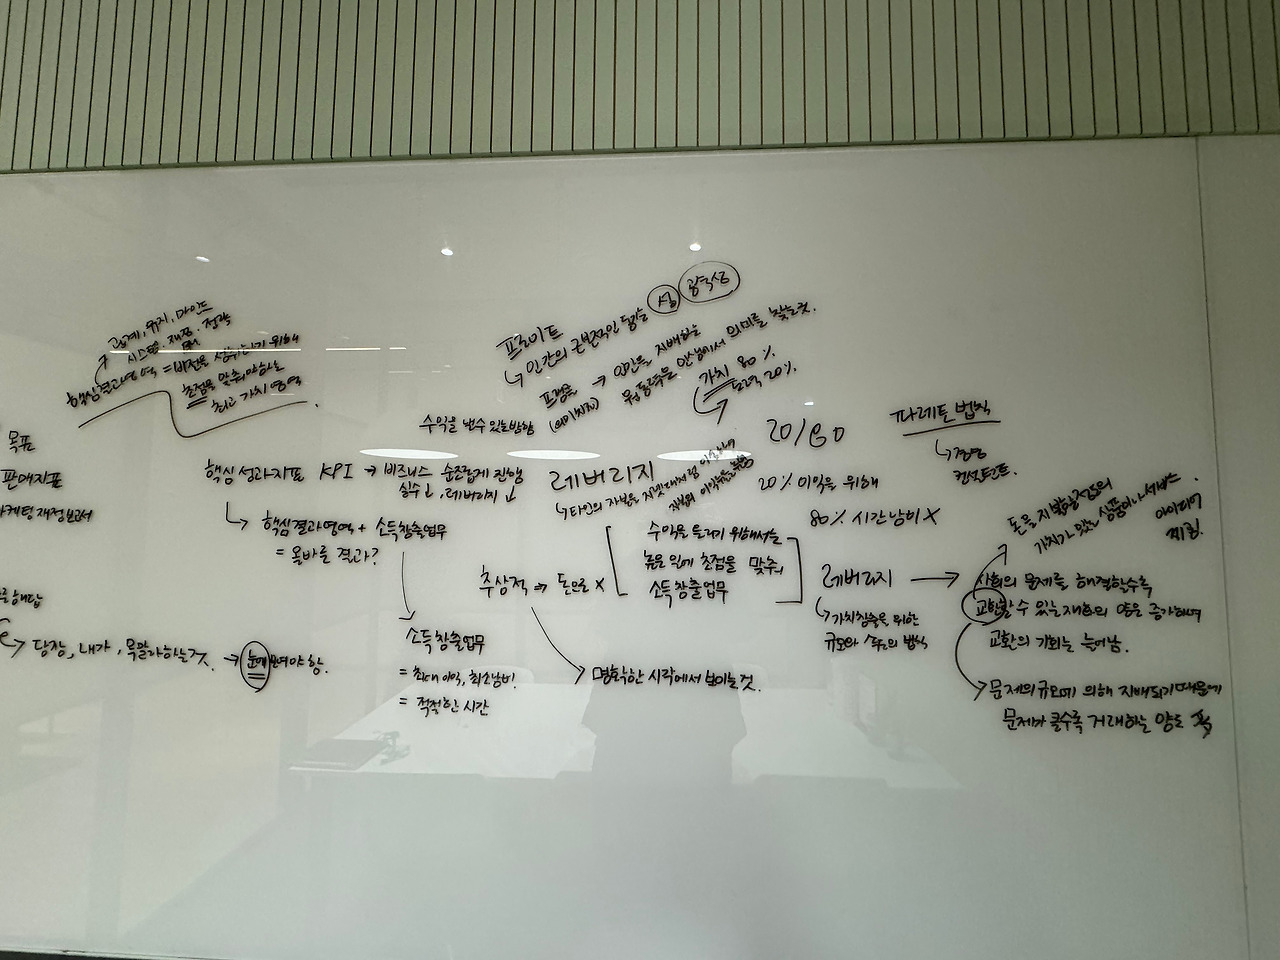 고객, 유지, 마인드
시스템, 재정, 전략
핵심결과영역 = 비전을 성취하기 위해
초점을 맞춰야하는
최고 가치 영역
목표
판매지표
마케팅 재정보고서
해답
→ 당장, 내가, 목말라하는것. → 눈에 보여야 함.
핵심성과지표 KPI → 비즈니스 순조롭게 진행
실수↓, 레버리지↓
↳ 핵심결과영역 + 소득창출업무
= 올바른 결과?
소득창출업무
= 최대이익, 최소낭비.
= 적절한 시간
수익을 낼수있는방향
프로이트
↳ 인간의 근본적인 동기는 성
프랭클 → 인간을 지배하는
원동력은 인생에서 의미를 찾는것.
가치 80%
노력 20%
레버리지
↳ 타인의 자본을 지렛대처럼 이용하여
20/80
20% 이익을 위해
80% 시간낭비 X
파레토 법칙
↳ 경영
컨설턴트.
추상적 → 돈으로 X
수익을 늘리기 위해서는
높은 일에 초점을 맞춰라
소득창출업무
명확한 시각에서 보이는것.
레버리지 →
↳ 가치창출을 위한
규모와 속도의 법칙
돈을 지불할정도의
가치가 있는 상품이나 서비스.
아이디어
제공.
사회의 문제를 해결할수록
교환할 수 있는 재화의 양은 증가하며
교환의 기회는 늘어남.
문제의 규모에 의해 지배되기 때문에
문제가 클수록 거래하는 양도